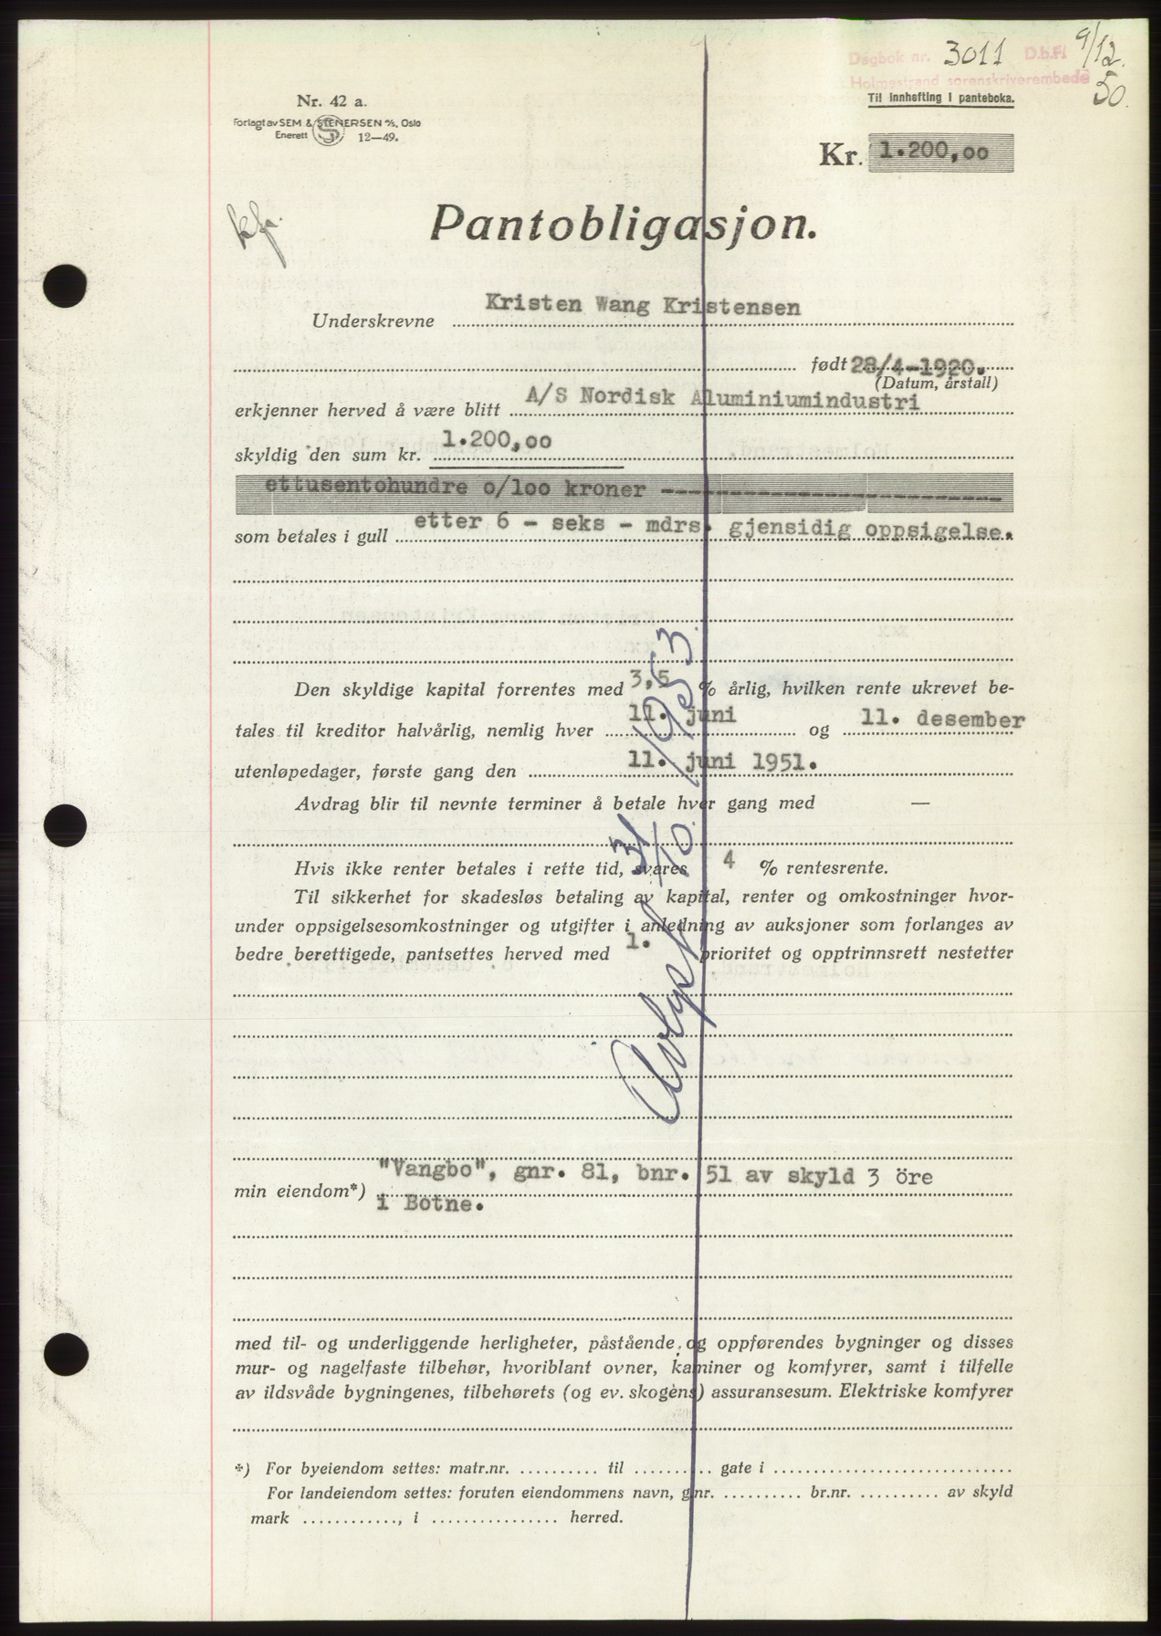 Dagbok nr. 3011 D.b.F. 9/12.
Holmestrand sorenskriverembede 50.
Til innhefting i panteboka.
Nr. 42 a.
Forlagt av SEM & STENERSEN A/S, Oslo
Enerett 12—49.
Kr. 1.200,oo
kfr.
Pantobligasjon.
Underskrevne Kristen Wang Kristensen
født 28/4-1920.
(Datum, årstall)
erkjenner herved å være blitt A/S Nordisk Aluminiumindustri
skyldig den sum kr. 1.200,oo
ettusentohundre o/loo kroner ------------------------
som betales i gull etter 6 - seks - mdrs. gjensidig oppsigelse.
Den skyldige kapital forrentes med 3,5 % årlig, hvilken rente ukrevet be-
tales til kreditor halvårlig, nemlig hver 11. juni og 11. desember
utenløpedager, første gang den 11. juni 1951.
Avdrag blir til nevnte terminer å betale hver gang med —
Hvis ikke renter betales i rette tid, svares 4 % rentesrente.
Til sikkerhet for skadesløs betaling av kapital, renter og omkostninger hvor-
under oppsigelsesomkostninger og utgifter i anledning av auksjoner som forlanges av
bedre berettigede, pantsettes herved med 1. prioritet og opptrinnsrett nestetter
Avlyst 31/10. 1953.
min eiendom*) "Vangbo", gnr. 81, bnr. 51 av skyld 3 öre
i Botne.
med til- og underliggende herligheter, påstående og oppførendes bygninger og disses
mur- og nagelfaste tilbehør, hvoriblant ovner, kaminer og komfyrer, samt i tilfelle
av ildsvåde bygningenes, tilbehørets (og ev. skogens) assuransesum. Elektriske komfyrer
*) For byeiendom settes: matr.nr. .......... til .......... gate i ..............................
For landeiendom settes: foruten eiendommens navn, gnr. .......... br.nr. .......... av skyld
mark ............, i ................ herred.